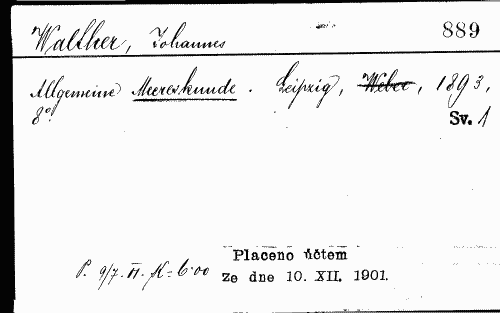 889
Walther, Johannes
Allgemeine Meereskunde. Leipzig, Weber, 1893,
8°. Sv. 1
Placeno účtem
P. 9/7. II. K= 6·00 ze dne 10. XII. 1901.